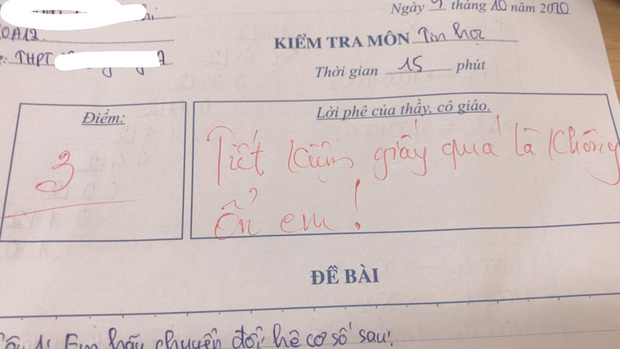 Ngày 9 tháng 10 năm 2020
0A12
KIỂM TRA MÔN Tin học
THPT
Thời gian 15 phút
Điểm:
Lời phê của thầy, cô giáo.
3
Tiết kiệm giấy quá là không
ổn em!
ĐỀ BÀI
Câu 1: Em hãy chuyển đổi hệ cơ số sau: